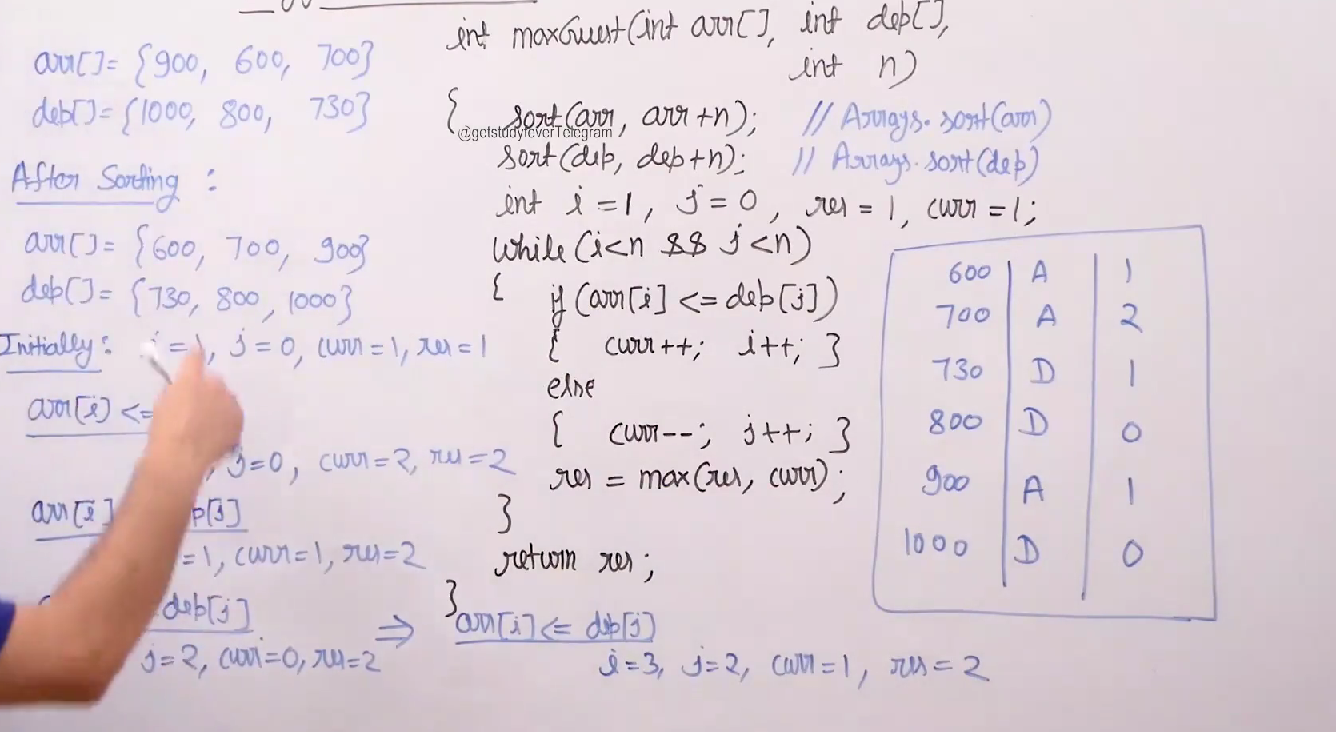 arr[]= {900, 600, 700}
dep[]= {1000, 800, 730}
After Sorting :
arr[]= {600, 700, 900}
dep[]= {730, 800, 1000}
Initially: i=1, j=0, curr=1, res=1
arr[i] <=
j=0, curr=2, res=2
arr[i] p[j]
=1, curr=1, res=2
dep[j]
j=2, curr=0, res=2
⇒ arr[i] <= dep[j]
i=3, j=2, curr=1, res=2
int maxGuest(int arr[], int dep[],
int n)
{ sort(arr, arr+n); // Arrays.sort(arr)
@getstudyfeverTelegram
sort(dep, dep+n); // Arrays.sort(dep)
int i=1, j=0, res=1, curr=1;
while(i<n && j<n)
{ if(arr[i] <= dep[j])
{ curr++; i++; }
else
{ curr--; j++; }
res = max(res, curr);
}
return res;
}
600 A 1
700 A 2
730 D 1
800 D 0
900 A 1
1000 D 0